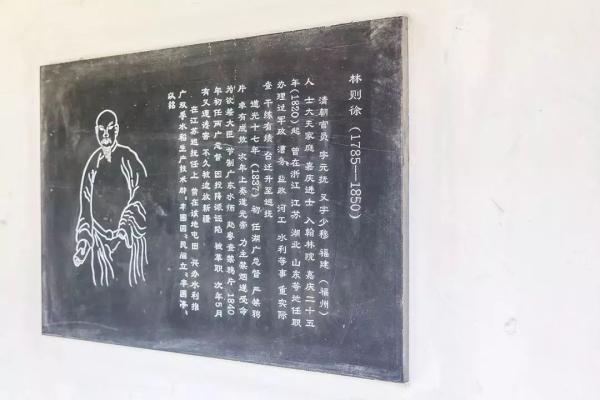 林则徐（1785—1850）
清朝官员 字元抚 又字少穆 福建（福州）
人 士大夫家庭 嘉庆进士 入翰林院 嘉庆二十五
年(1820)起 曾在浙江 江苏 湖北 山东等地任职
办理过军政 漕务 盐政 河工 水利等事 重实际
查 干练有绩 台迁升至巡抚
道光十七年（1837）初 任湖广总督 严禁鸦
片 卓有成效 次年上奏道光帝 力主禁烟遂受命
为钦差大臣 节制广东水师 赴粤查禁鸦片 1840
年初任两广总督 因投降派诬陷 被革职 次年5月
有又遭诿害 不久被迫放新疆
在江苏巡抚任上 曾在该地屯田 兴办水利推
广双季水稻生产技术